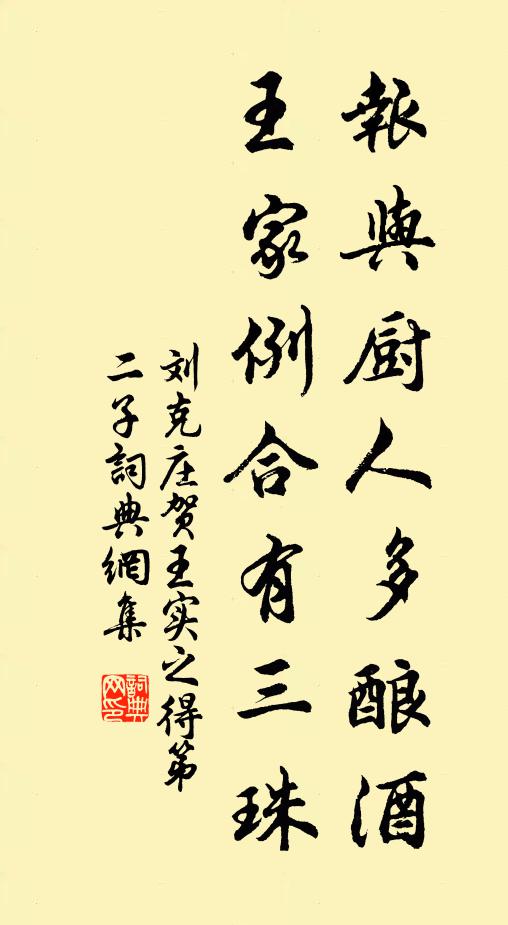 報與厨人多酿酒
王家例合有三珠
刘克庄贺王实之得第
二子詞典網集
詞典
网印